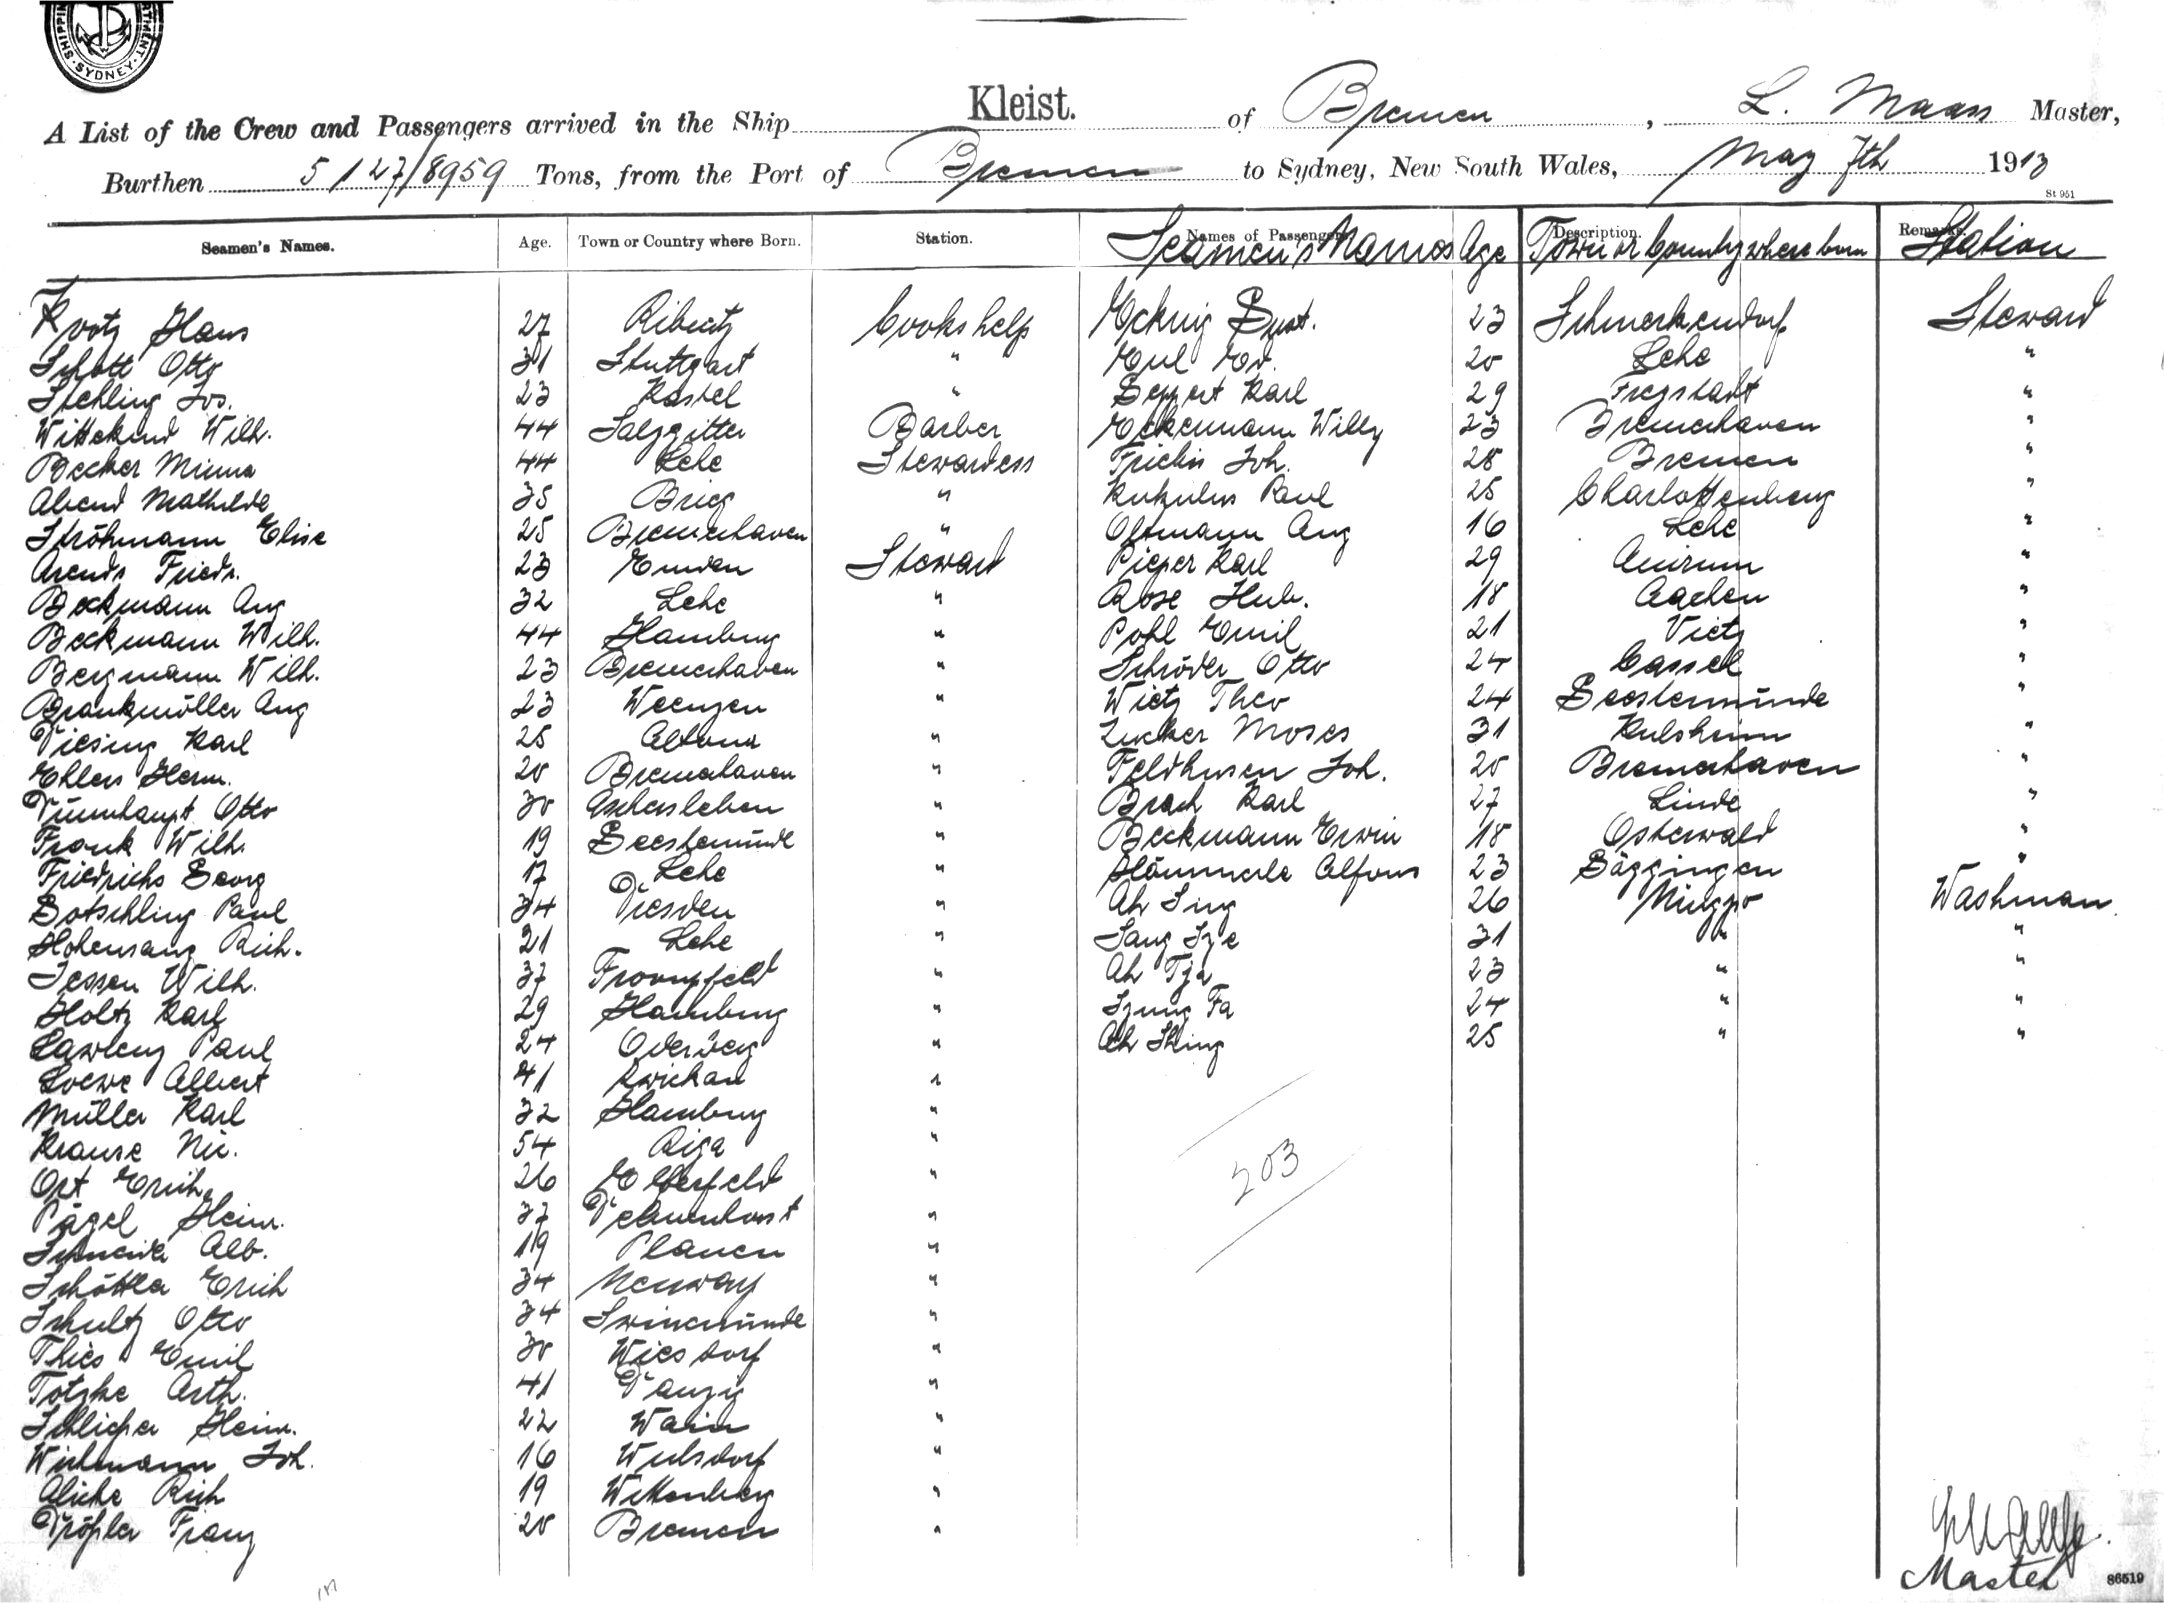 SYDNEY
A List of the Crew and Passengers arrived in the Ship Kleist. of Bremen, L. Maass Master,
Burthen 5127/8959 Tons, from the Port of Bremen to Sydney, New South Wales, May 7th 1913
St 951
Seamen's Names. Age. Town or Country where Born. Station. Names of Passengers. Seamen's Names Age Description. Town or Country where born Remarks. Station
Hans 27 Ribnitz Cooks help 23 Schmerkendorf Steward
Schott Otto 31 Stuttgart " 20 Lehe "
Stehling Jos. 23 Kastel " Geppert Karl 29 "
Wittekind Wilh. 44 Salzgitter Barber Eckermann Willy 23 Bremerhaven "
Becker Minna 44 Lehe Stewardess Frichs Joh. 28 Bremen "
Abend Mathilde 35 Brieg " Kukulus Paul 25 Charlottenburg "
Ströhmann Elise 25 Bremerhaven " Oltmann Aug 16 Lehe "
Arends Friedr. 23 Emden Steward Pieper Karl 29 Amrum "
Beckmann Aug 32 Lehe " Rose Hub. 18 Aachen "
Beckmann Wilh. 44 Hamburg " Pohl Emil 21 Vietz "
Bergmann Wilh. 23 Bremerhaven " Schröder Otto 24 Cassel "
Brankmöller Aug 23 Weenzen " Wietz Theo 24 Geestemünde "
Diesing Karl 25 Altona " Zucker Moses 31 Kulsheim "
Ehlers Herm. 20 Bremerhaven " Feldhusen Joh. 20 Bremerhaven "
Dünnhaupt Otto 30 Aschersleben " Brach Karl 27 Linde "
Frank Wilh. 19 Geestemünde " Beckmann Erwin 18 Osterwald "
Friedrichs Georg 17 Lehe " Hämmerle Alfons 23 Gäggingen "
Götschling Paul 34 Dresden " Ah Sing 26 Ningpo Washman
Hohensang Rich. 21 Lehe " Sang Sze 31 " "
Jessen Wilh. 37 " Ah Tja 23 " "
Holtz Karl 29 Hamburg " Szung Fa 24 " "
Paul 24 Oderberg " Ah Shing 25 " "
Loewe Albert 41 Zwickau "
Müller Karl 32 Hamburg "
Krause Nic. 54 Riga "
203
Ort Erich 26 Elberfeld "
Pägel Heinr. 37 Delmenhorst "
Schneider Alb. 19 Plauen "
Schöttler Erich 34 "
Schultz Otto 34 Swinemünde "
Thies Emil 30 Wiesdorf "
Totzke Arth. 41 Danzig "
Schlicher Heinr. 22 Warin "
Wichmann Joh. 16 Wulsdorf "
Alicke Rich 19 Wittenberg "
Franz 20 Bremen "
Master
86519